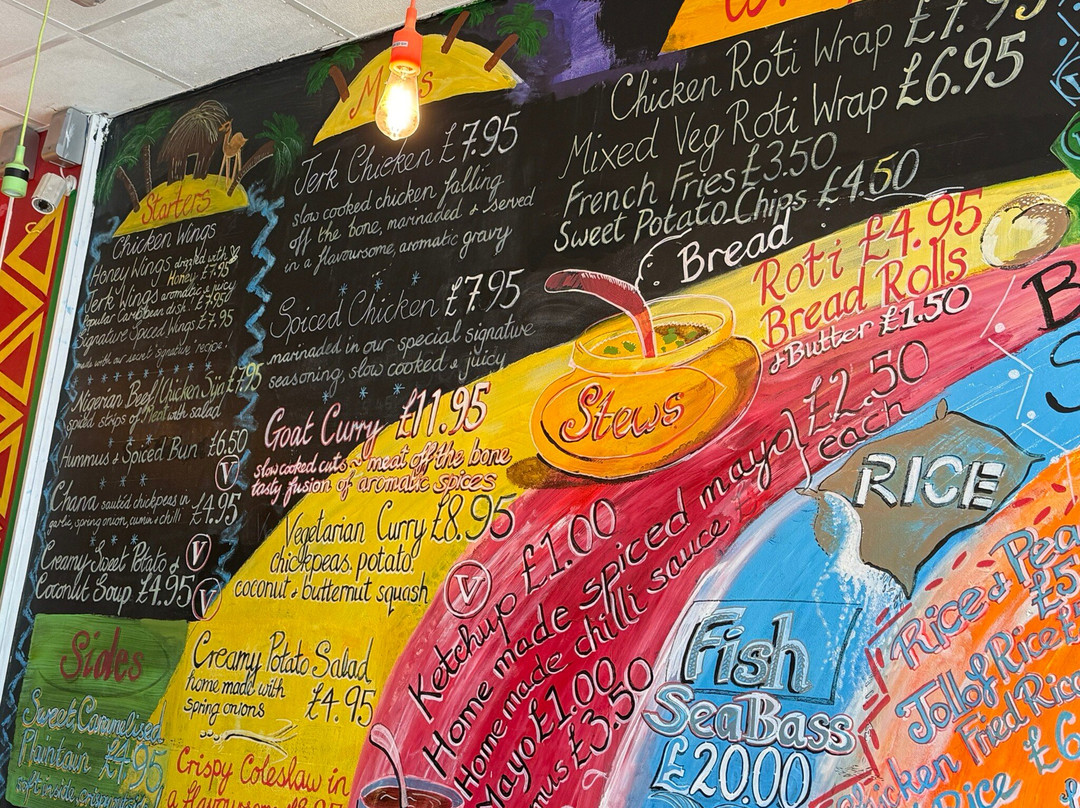 Starters
Chicken Wings
Honey Wings drizzled with
Honey £7.95
Jerk Wings aromatic & juicy
popular Caribbean dish. £7.95
Signature Spiced Wings £7.95
made with our secret 'signature' recipe.
Nigerian Beef/Chicken Suja £7.95
spiced strips of Meat with salad
Hummus & Spiced Bun £6.50
V
Chana sautéd chickpeas in £4.95
garlic, spring onion, cumin & chilli
Creamy Sweet Potato & V
Coconut Soup £4.95 V
Sides
Sweet Caramelised
Plaintain £4.95
soft inside crispy
Jerk Chicken £7.95
slow cooked chicken falling
off the bone, marinaded & served
in a flavoursome, aromatic gravy
Spiced Chicken £7.95
marinaded in our special signature
seasoning, slow cooked & juicy
Goat Curry £11.95
slow cooked cuts meat off the bone
tasty fusion of aromatic spices
Vegetarian Curry £8.95
chickpeas, potato,
coconut & butternut squash
V
Creamy Potato Salad
home made with
spring onions £4.95
Crispy Coleslaw in
a flavoursome
£7.95
Chicken Roti Wrap
Mixed Veg Roti Wrap £6.95
French Fries £3.50
Sweet Potato Chips £4.50
Bread
Roti £4.95
Bread Rolls
& Butter £1.50
Stews
Ketchup £1.00
Home made spiced mayo £2.50
Home made chilli sauce each
Mayo £1.00
£3.50
RICE
Fish
Sea Bass
£20.00
Rice &
Jollof Rice
Fried Rice
Rice